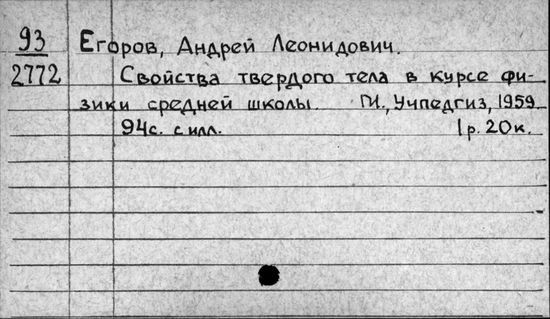 93 Егоров, Андрей Леонидович.
2772 Свойства твердого тела в курсе фи-
зики средней школы. М., Учпедгиз, 1959
94с. с илл. 1р. 20к.